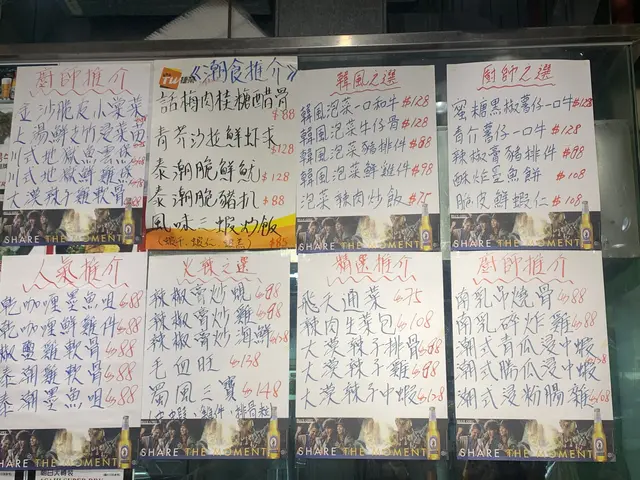 廚師推介
金沙脆皮小棠菜
川式地獄魚雲
川式地獄鮮魷
大漠辣子雞軟骨
SHARE THE MOMENT
《潮食推介》
話梅肉桂糖醋骨 $88
青芥沙拉鮮蝦球 $128
泰潮脆鮮魷 $128
泰潮脆豬扒 $88
風味三蝦炒飯 $85
韓風之選
韓風泡菜一口和牛 $128
韓風泡菜牛仔骨 $128
韓風泡菜豬排件 $88
韓風泡菜鮮雞件 $98
泡菜豬肉炒飯 $75
SHARE THE MOMENT
廚師之選
蜜糖黑椒薯仔一口牛 $128
青介薯仔一口牛 $128
辣椒膏豬排件 $88
酥炸墨魚餅 $108
脆皮鮮蝦仁 $108
SHARE THE MOMENT
人氣推介
乾咖喱墨魚咀 $88
乾咖喱鮮雞件 $88
椒鹽雞軟骨 $88
泰潮雞軟骨 $88
泰潮墨魚咀 $88
SHARE THE MOMENT
火辣之選
辣椒膏炒蜆 $98
辣椒膏炒雞 $98
辣椒膏炒海鮮 $138
毛血旺 $138
蜀風三寶 $148
SHARE THE MOMENT
精選推介
飛天通菜 $75
辣肉生菜包 $108
大漠辣子排骨 $98
大漠辣子雞 $98
大漠辣子中蝦 $138
SHARE THE MOMENT
廚師推介
南乳吊燒骨 $88
南乳碎炸雞 $88
潮式青瓜浸中蝦
潮式勝瓜浸中蝦
潮式浸粉腸雞 $108
SHARE THE MOMENT